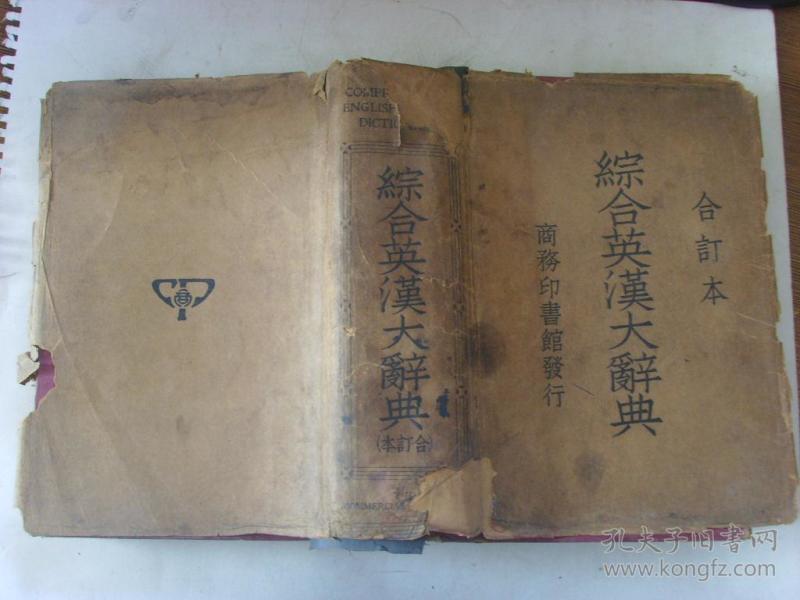 合訂本
綜合英漢大辭典
商務印書館發行
ENGLISH
綜合英漢大辭典
(合訂本)
孔夫子旧书网
www.kongfz.com